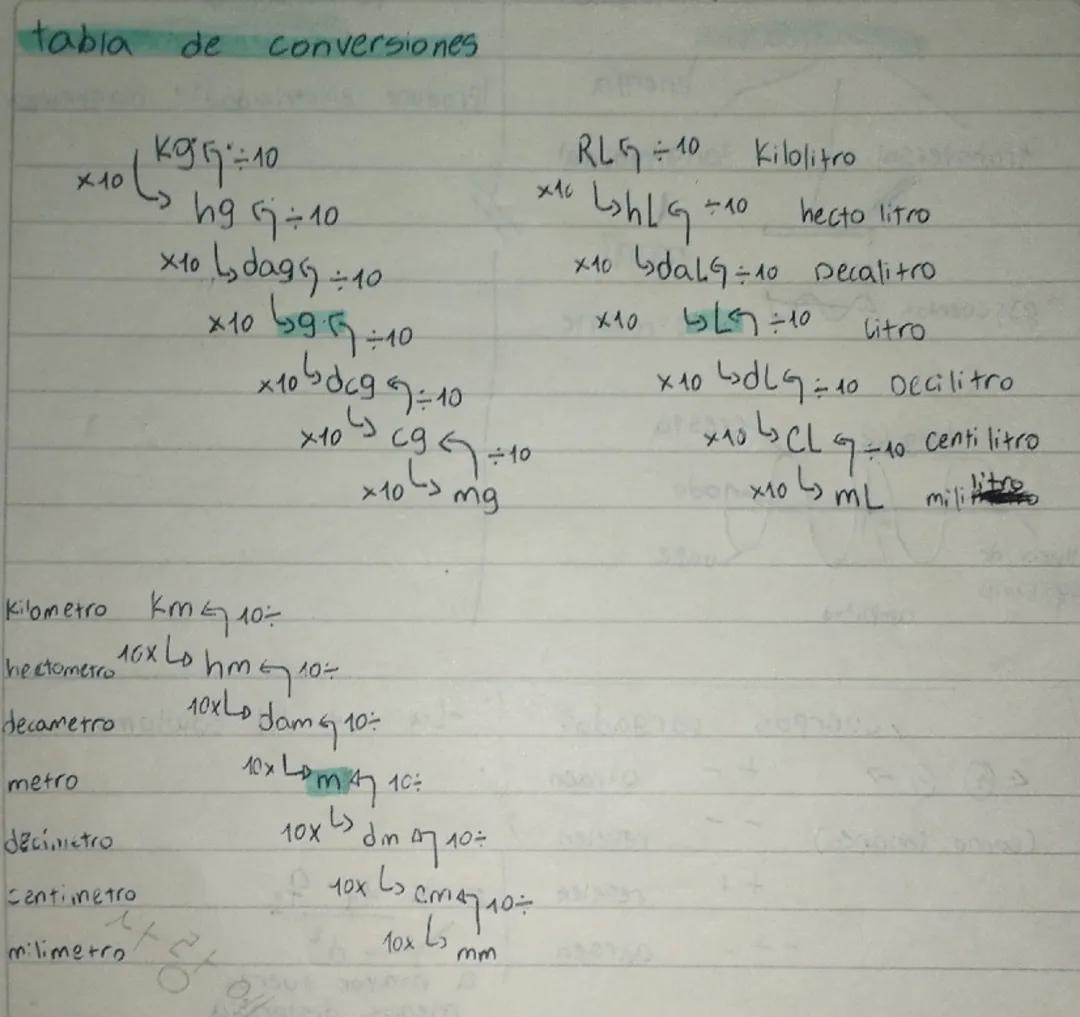 tabla de conversiones
Kg ÷10
x10 hg ÷10
x10 dag ÷10
x10 g ÷10
x10 dcg ÷10
x10 cg ÷10
x10 mg
RL ÷10 Kilolitro
x10 hL ÷10 hecto litro
x10 daL ÷10 Decalitro
x10 L ÷10 Litro
x10 dL ÷10 Decilitro
x10 CL ÷10 centi litro
x10 mL mili litro
Kilometro Km 10÷
hectometro 10x hm 10÷
decametro 10x dam 10÷
metro 10x m 10÷
decimetro 10x dm 10÷
centimetro 10x cm 10÷
milimetro 10x mm